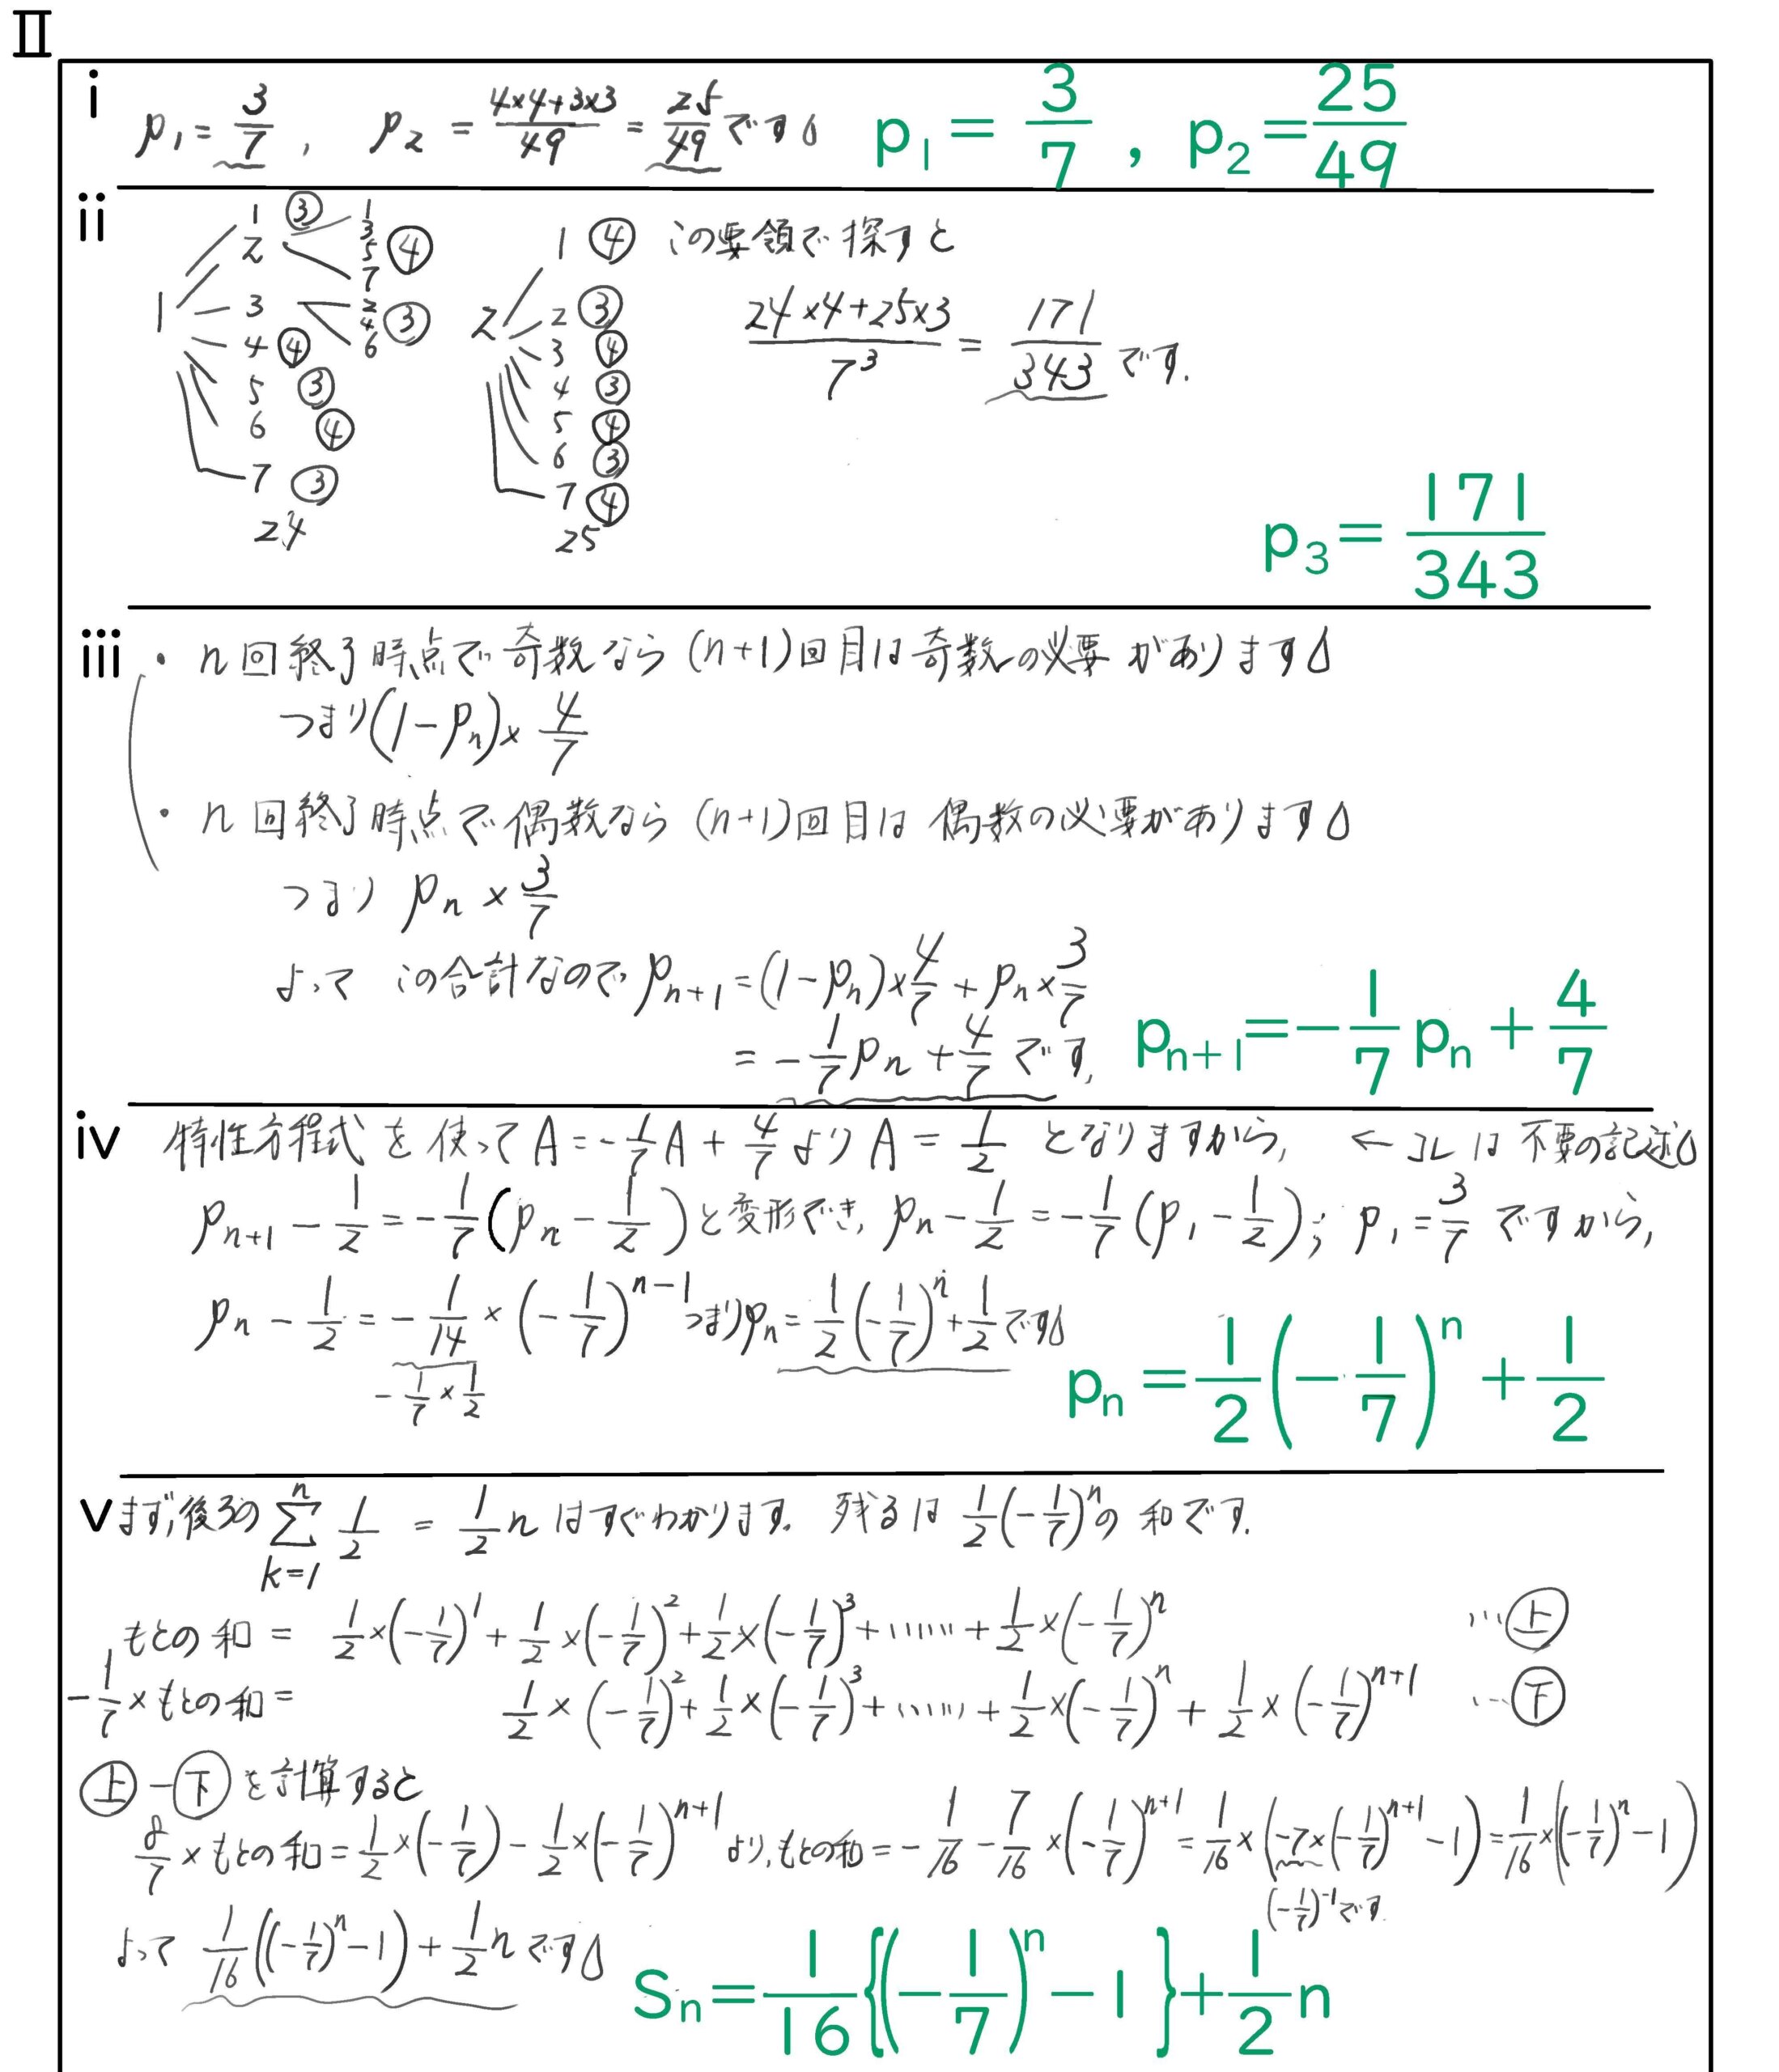 II
i p₁ = 3/7 , p₂ = (4×4+3×3)/49 = 25/49 です。 p₁ = 3/7 , p₂ = 25/49
ii
1
1 ③
2
1 3 5 7 ④
3
2 4 6 ③
4 ④
5 ③
6 ④
7 ③
24
2
1 ④
2 ③
3 ④
4 ③
5 ④
6 ③
7 ④
25
この要領で探すと
(24×4+25×3)/7³ = 171/343 です.
p₃ = 171/343
iii ・ n回終了時点で奇数なら (n+1)回目は奇数の必要があります。
つまり(1-pₙ)× 4/7
・ n回終了時点で偶数なら (n+1)回目は偶数の必要があります。
つまり pₙ × 3/7
よって この合計なので pₙ₊₁ = (1-pₙ)×4/7 + pₙ×3/7
= -1/7 pₙ + 4/7 です. pₙ₊₁ = -1/7 pₙ + 4/7
iv 特性方程式を使って A = -1/7 A + 4/7 より A = 1/2 となりますから, ← コレは不要の記述。
pₙ₊₁ - 1/2 = -1/7 (pₙ - 1/2) と変形でき, pₙ - 1/2 = -1/7 (p₁ - 1/2); p₁ = 3/7 ですから,
pₙ - 1/2 = -1/14 × (-1/7)ⁿ⁻¹ つまり pₙ = 1/2 (-1/7)ⁿ + 1/2 です。
-1/7 × 1/2
pₙ = 1/2 (-1/7)ⁿ + 1/2
v まず, 後ろの Σ[k=1→n] 1/2 = 1/2 n はすぐわかります. 残るは 1/2 (-1/7)ⁿ の和です.
もとの和 = 1/2×(-1/7)¹ + 1/2×(-1/7)² + 1/2×(-1/7)³ + ...... + 1/2×(-1/7)ⁿ …㊤
-1/7 × もとの和 = 1/2×(-1/7)² + 1/2×(-1/7)³ + ...... + 1/2×(-1/7)ⁿ + 1/2×(-1/7)ⁿ⁺¹ …㊦
㊤-㊦を計算すると
8/7 × もとの和 = 1/2×(-1/7) - 1/2×(-1/7)ⁿ⁺¹ より, もとの和 = -1/16 - 7/16 × (-1/7)ⁿ⁺¹ = 1/16 × (-7×(-1/7)ⁿ⁺¹ - 1) = 1/16 × ((-1/7)ⁿ - 1)
(-1/7)⁻¹です.
よって 1/16 ((-1/7)ⁿ - 1) + 1/2 n です。
Sₙ = 1/16 {(-1/7)ⁿ - 1} + 1/2 n